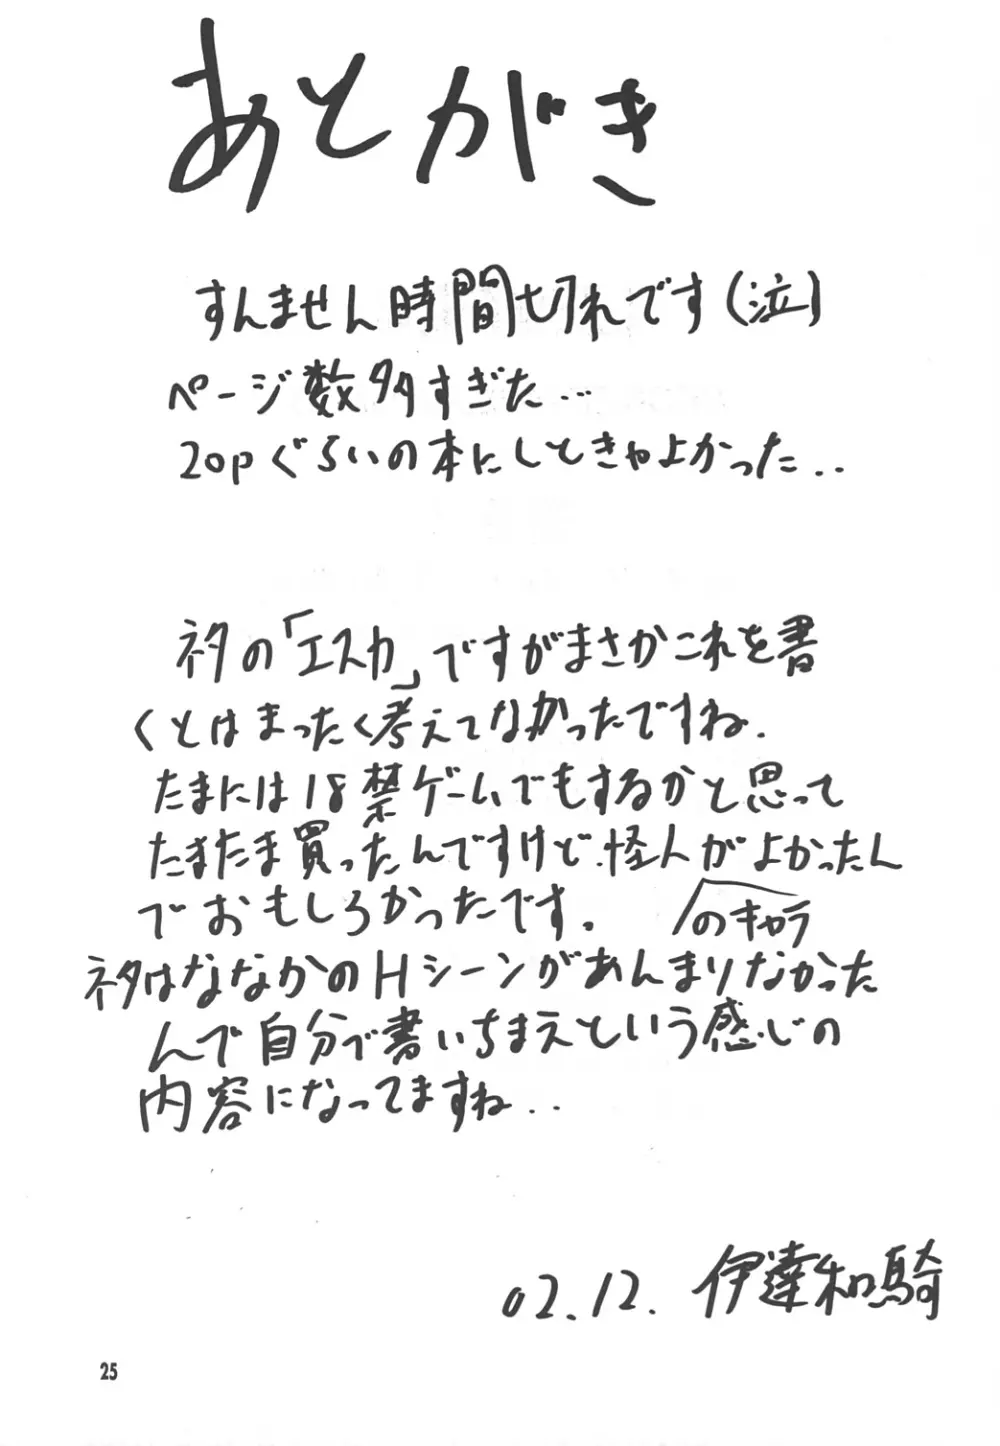 あとがき
すんません時間切れです(泣)
ページ数多すぎた...
20pぐらいの本にしときゃよかった..
ネタの「エスカ」ですがまさかこれを書
くとはまったく考えてなかったですね.
たまには18禁ゲームでもするかと思って
たまたま買ったんですけど.怪人がよかったん
でおもしろかったです。
のキャラ
ネタはななかのHシーンがあんまりなかった
んで自分で書いちまえという感じの
内容になってますね..
02.12. 伊達和騎
25